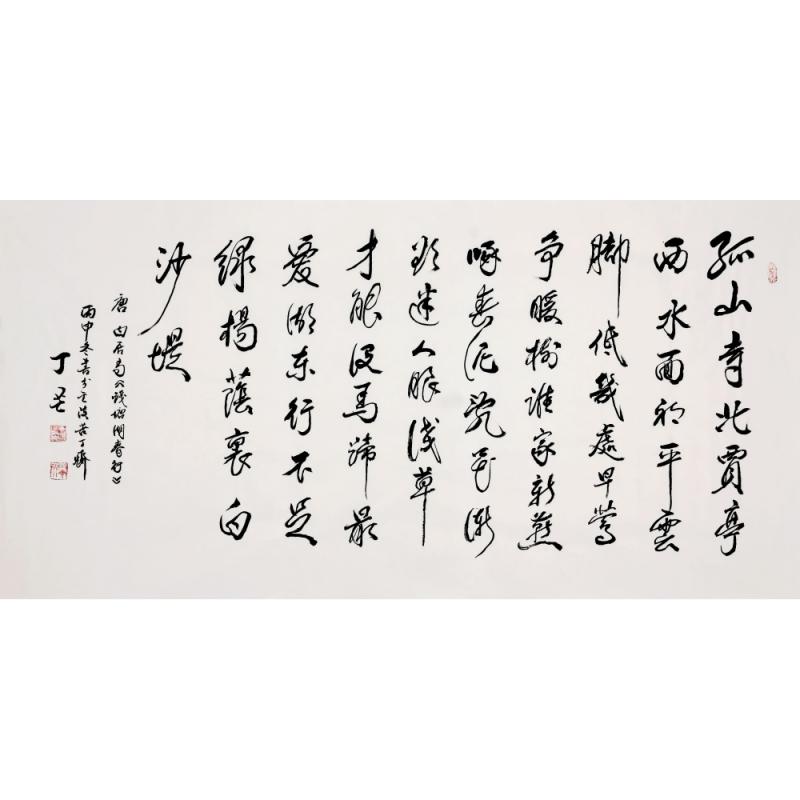 孤山寺北賈亭
西水面初平雲
脚低幾處早鶯
争暖樹誰家新燕
啄春泥亂花漸
欲迷人眼淺草
才能没馬蹄最
爱湖东行不足
绿楊蔭裏白
沙堤
唐 白居易《錢塘湖春行》
丙申冬書於
丁芒